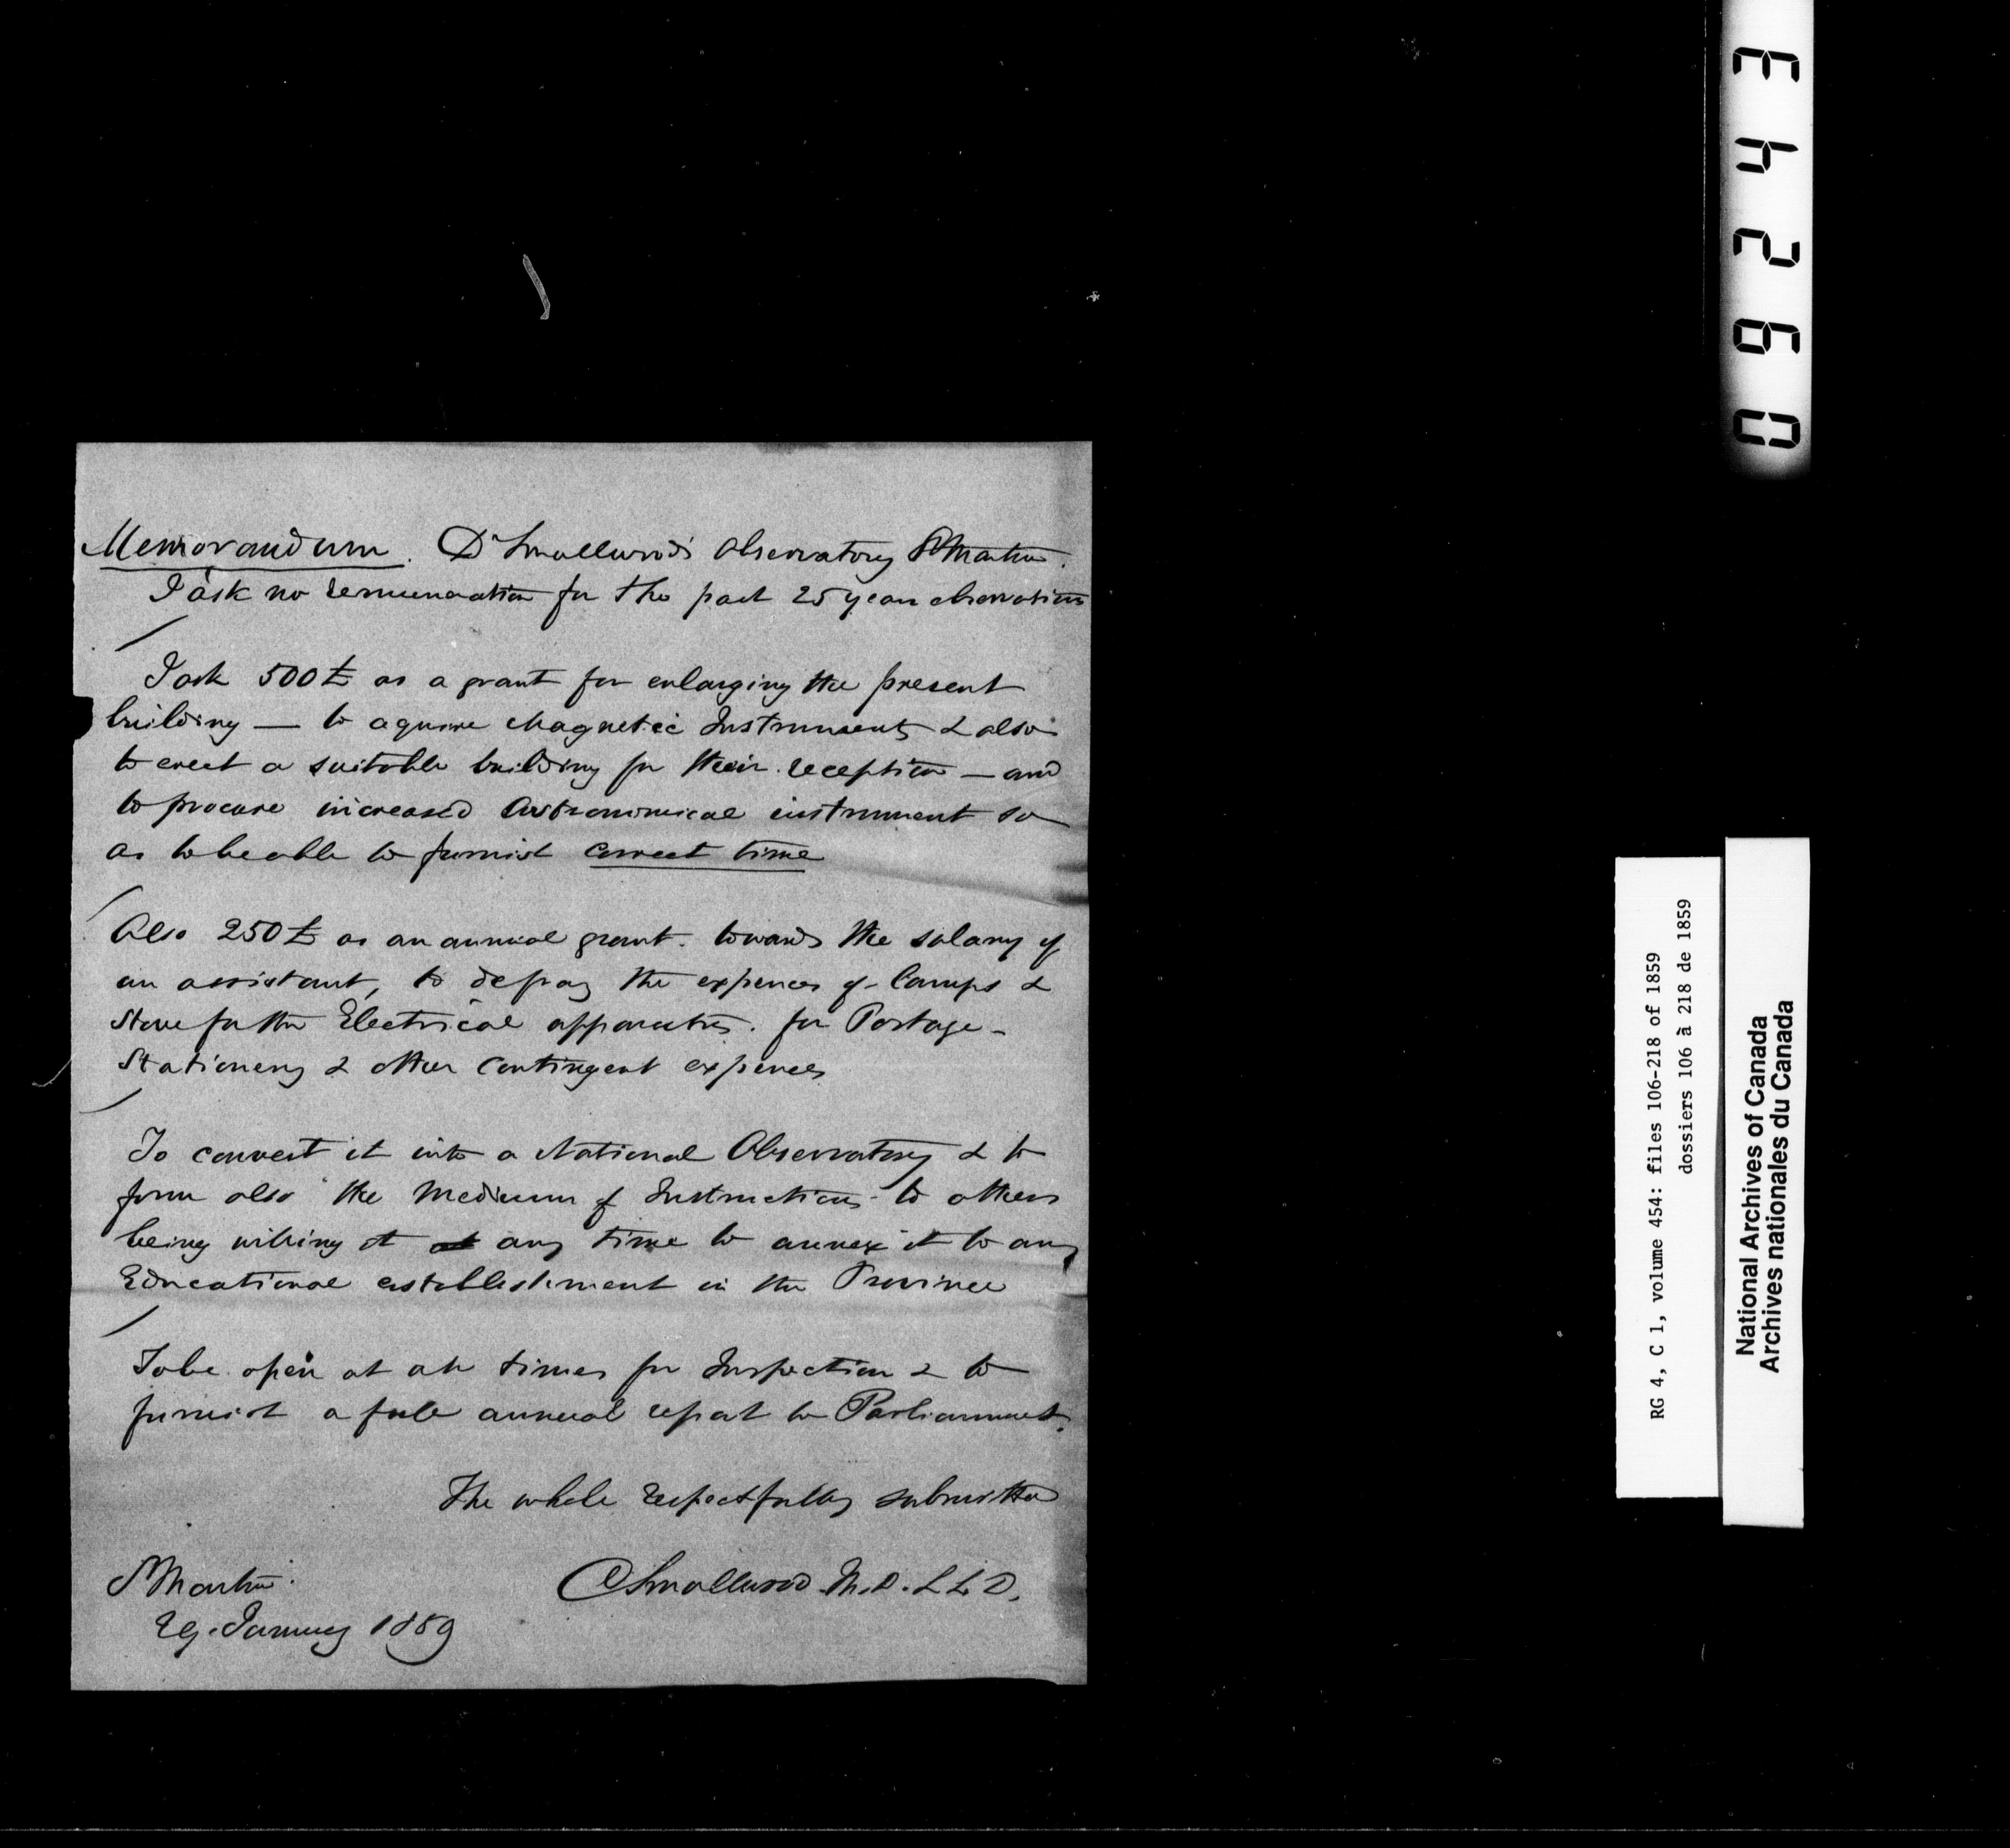 Memorandum. Dr Smallwood's Observatory St Martin.
I ask no remuneration for the past 25 years observations
I ask 500£ as a grant for enlarging the present
building — to aquire Magnetic Instruments & also
to erect a suitable building for their reception — and
to procure increased Astronomical instrument so
as to be able to furnish correct time
Also 250£ as an annual grant. towards the salary of
an assistant, to defray the expences of Lamps &
Stove for the Electrical apparatus. for Postage -
Stationery & other contingent expences
To convert it into a National Observatory & to
form also the Medium of Instruction to others
being willing at any time to annex it to any
Educational establishment in the Province
To be open at all times for Inspection & to
furnish a full annual report to Parliament.
The whole respectfully submitted
St Martin.
C Smallwood M.D. L L D.
29. January 1859
RG 4, C 1, volume 454: files 106-218 of 1859
dossiers 106 à 218 de 1859
National Archives of Canada
Archives nationales du Canada
06243